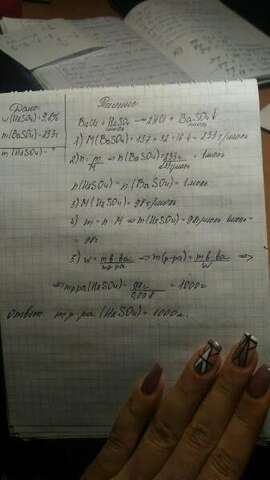 Дано:
w(H₂SO₄)=9,8%
m(BaSO₄)=233г
m(H₂SO₄)-?
Решение
BaCl₂ + H₂SO₄ → 2HCl + BaSO₄↓
1) M(BaSO₄) = 137 + 32 + 16·4 = 233 г/моль
2) n = m/M ⇒ n(BaSO₄) = 233г/233г/моль = 1 моль
n(H₂SO₄) = n(BaSO₄) = 1 моль
3) M(H₂SO₄) = 98 г/моль
4) m = n·M ⇒ m(H₂SO₄) = 98 г/моль · 1 моль =
= 98г
5) w = m в-ва/m р-ра ⇒ m(р-ра) = m в-ва/w ⇒
⇒ m р-ра (H₂SO₄) = 98г/0,098 = 1000г
ответ m р-ра (H₂SO₄) = 1000г.